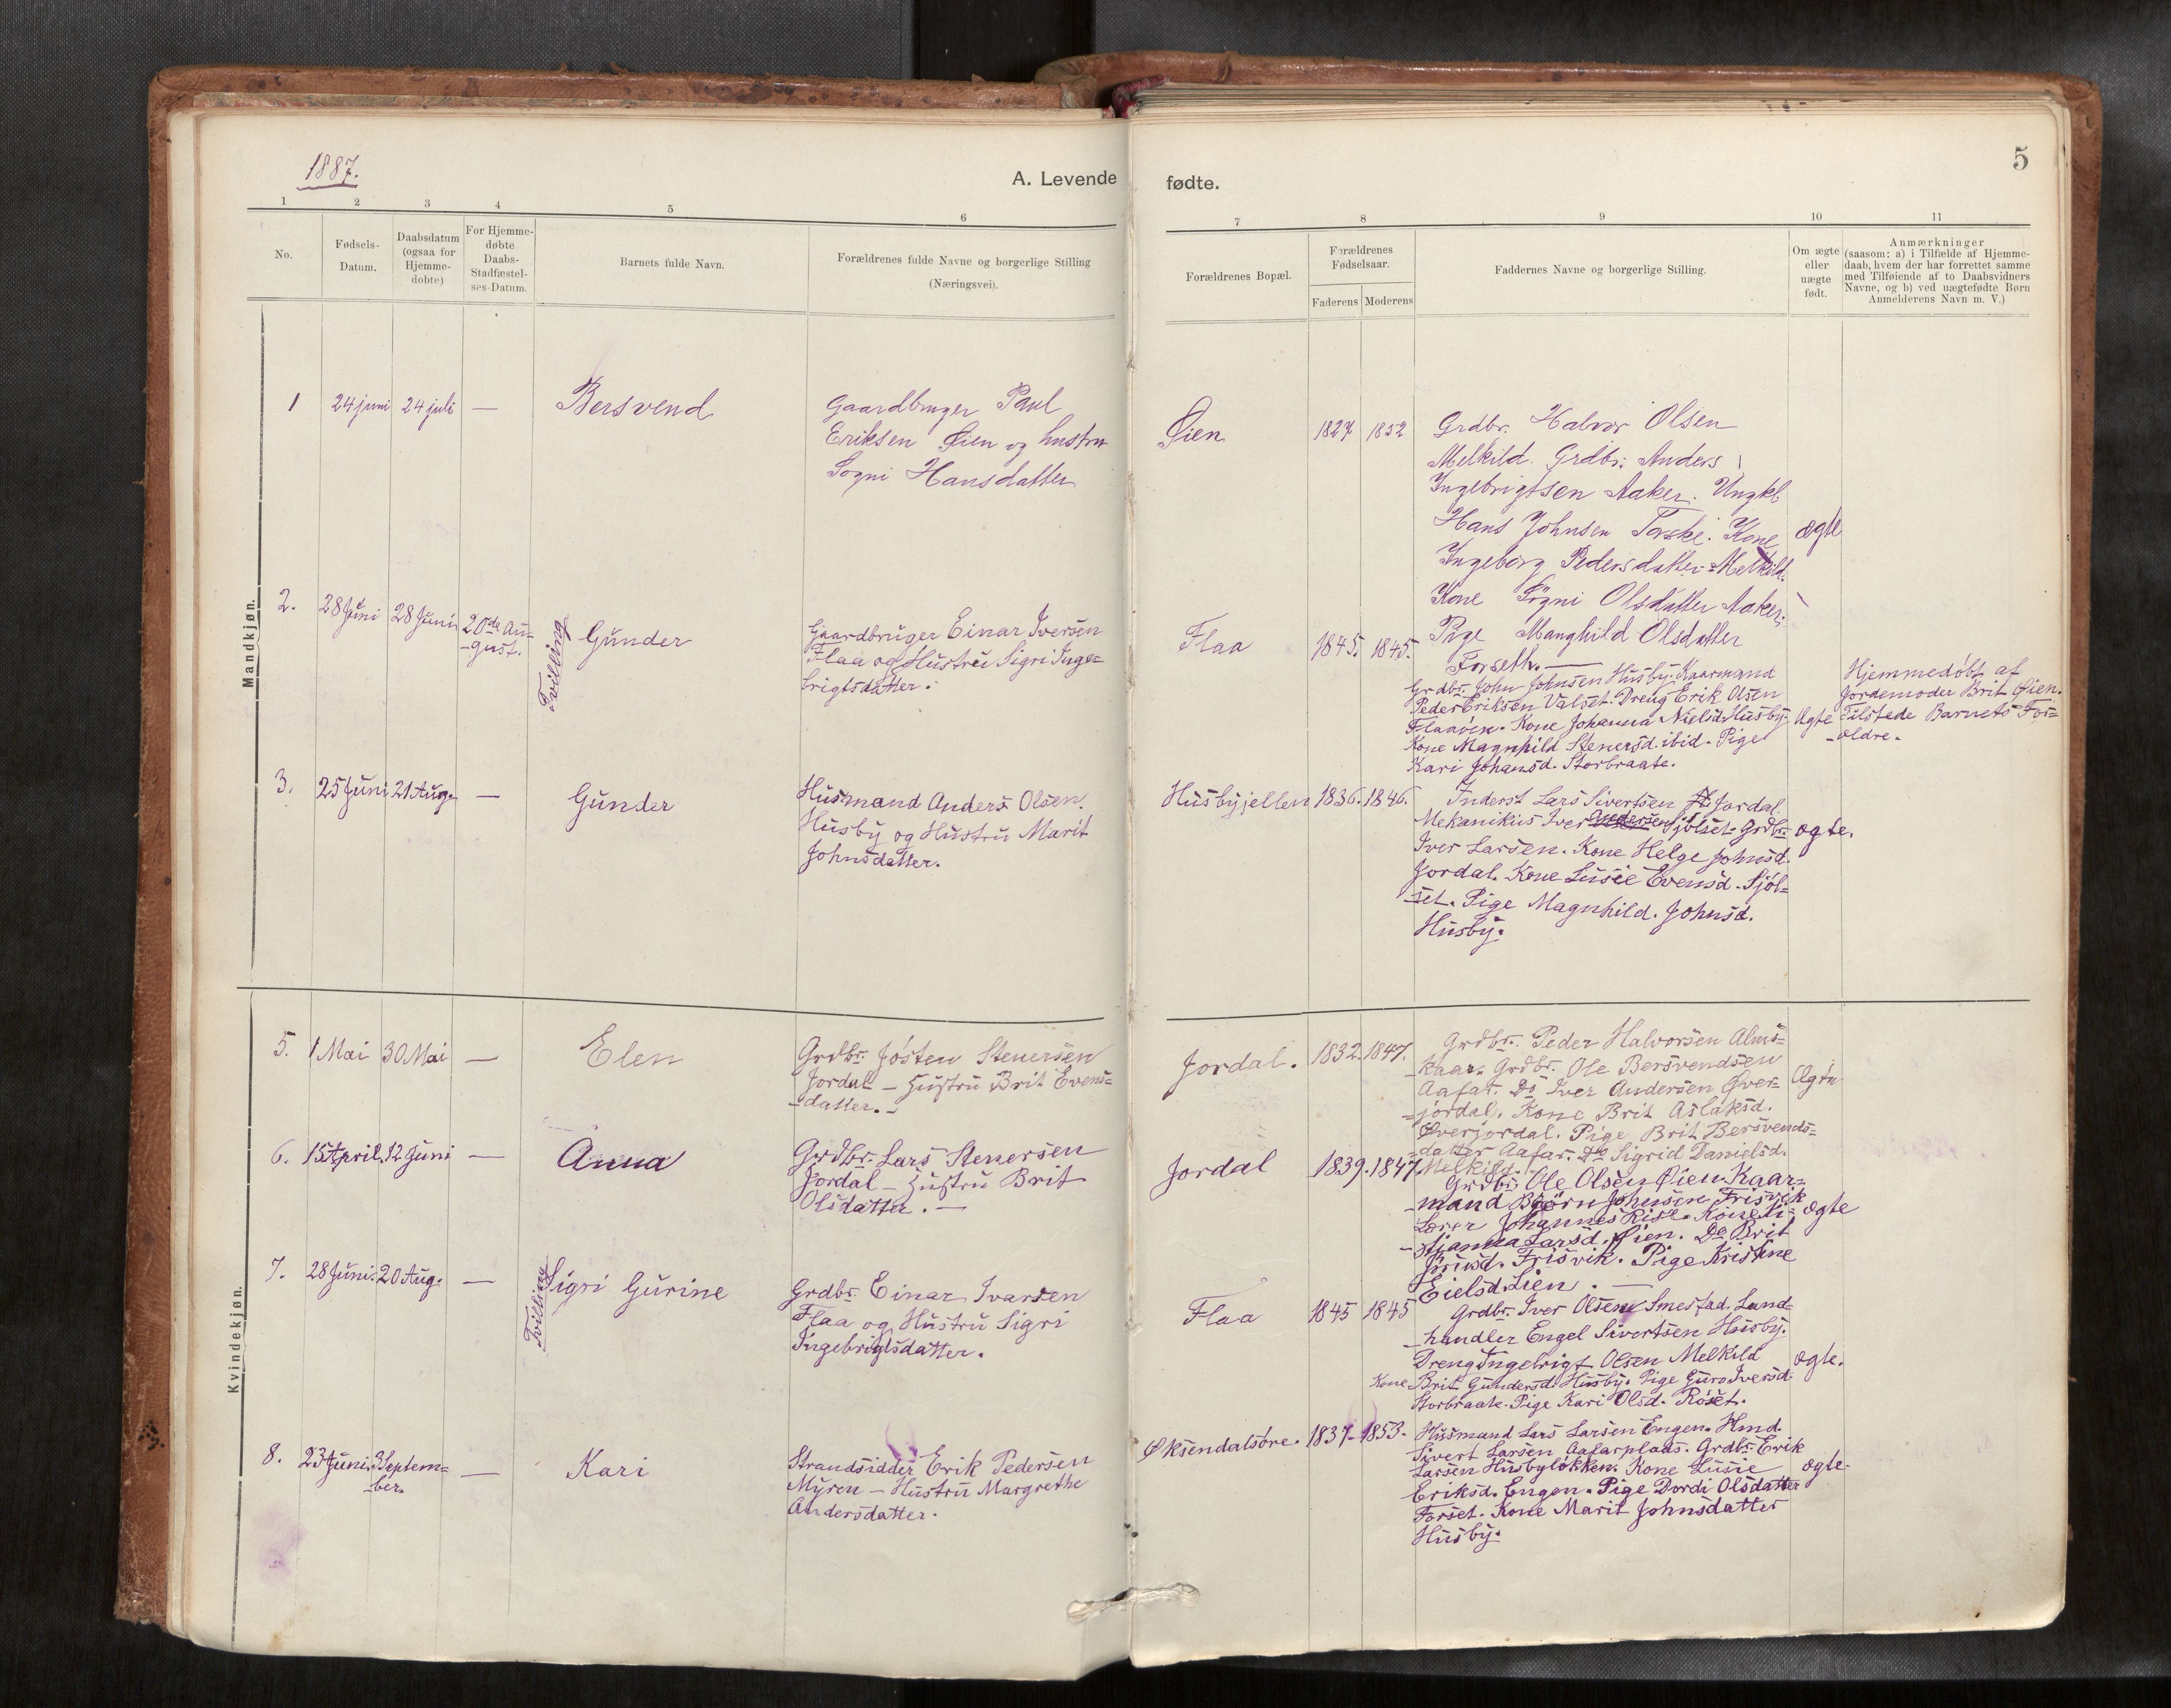 1887.
A. Levende
fødte.
5
1 2 3 4 5 6 7 8 9 10 11
No.
Fødsels-
Datum.
Daabsdatum
(ogsaa for
Hjemme-
dobte)
For Hjemme-
døbte
Daabs-
Stadfæstel-
ses-Datum.
Barnets fulde Navn.
Forældrenes fulde Navne og borgerlige Stilling
(Næringsvei).
Forældrenes Bopæl.
Forældrenes
Fødselsaar.
Faderens Moderens
Faddernes Navne og borgerlige Stilling.
Om ægte
eller
uægte
født.
Anmærkninger
(saasom: a) i Tilfælde af Hjemme-
daab, hvem der har forrettet samme
med Tilføiende af to Daabsvidners
Navne, og b) ved uægtefødte Børn
Anmelderens Navn m. V.)
Mandkjøn.
1 24 juni 24 juli — Bersvend
Gaardbruger Paul
Eriksen Øien og hustru
Sogni Hansdatter
Øien 1827 1852
Grdbr. Halvor Olsen
Melkild. Grdbr: Anders
Ingebrigtsen Aaker. Ungkl
Hans Johnsen Torske. Kone
Ingeborg Pedersdatter Melkild.
Kone Sögni Olsdatter Aaker;
Pige Manghild Olsdatter
Forseth. —
ægte
2. 28 Juni 28 Juni 20de Au-
-gust.
Tvilling
Gunder
Gaardbruger Einar Iversen
Flaa og Hustru Sigri Inge=
brigtsdatter.
Flaa 1845. 1845.
Grdbr. John Johnsen Husby. Kaarmand
Peder Eriksen Valset. Dreng Erik Olsen
Flaaöien. Kone Johanna Nielsd. Husby.
Kone Magnhild Stenersd. ibid. Pige
Kari Johansd. Storbraate.
Ægte
Hjemmedöbt af
Jordemoder Brit Øien.
Tilstede Barnets For=
-ældre.
3. 25 Juni 21 Aug. — Gunder
Husmand Anders Olsen
Husby og Hustru Marit
Johnsdatter.
Husbyjellen 1836. 1846.
Inderst Lars Sivertsen Jordal
Mekanikus Iver Andersen Sjölset. Grdbr.
Iver Larsen. Kone Helge Johnsd.
Jordal. Kone Lusie Evensd. Sjöl=
set. Pige Magnhild. Johnsd.
Husby.
ægte.
Kvindekjøn.
5. 1 Mai 30 Mai — Elen
Grdbr. Jösten Stenersen
Jordal — Hustru Brit Evens=
-datter. -
Jordal. 1832. 1847.
Grdbr. Peder Halvorsen Alms=
kaar. Grdbr. Ole Bersvendsen
Aafar. Do Iver Andersen Øver=
=jordal. Kone Brit Aslaksd.
Øverjordal. Pige Brit Bersvends=
=datter Aafar. Do Sigrid Danielsd.
Melkild.
Ægte
6. 15 April. 12 Juni — Anna
Grdbr. Lars Stenersen
Jordal — Hustru Brit
Olsdatter. —
Jordal 1839. 1847
Grdbr. Ole Olsen Øien. Kaar=
mand Björn Johnsen Frisvik
Lærer Johannes Rise. Kone
Larsd. Øien. Do Brit
Frisvik. Pige Kristine
Eielsd. Lien. —
ægte
7. 28 Juni. 20 Aug. —
Tvilling
Sigri Gurine
Grdbr. Einar Ivarsen
Flaa og Hustru Sigri
Ingebrigtsdatter.
Flaa 1845 1845
Grdbr. Iver Olsen Smestad. Land=
-handler Engel Sivertsen Husby.
Dreng Ingebrigt Olsen Melkild
Kone Brit Gundersd. Husby. Pige Guro Iversd.
Storbraate. Pige Kari Olsd. Röset.
ægte.
8. 23 Juni. 3 Septem=
-ber. — Kari
Strandsidder Erik Pedersen
Myren — Hustru Margrethe
Andersdatter.
Øksendalsöre. 1837 - 1853.
Husmand Lars Larsen Engen. Hmd.
Sivert Larsen Aafarplads. Grdbr. Erik
Larsen Husbylökken. Kone Lusie
Eriksd. Engen. Pige Dordi Olsdatter
Forset. Kone Marit Johnsdatter
Husby.
ægte.